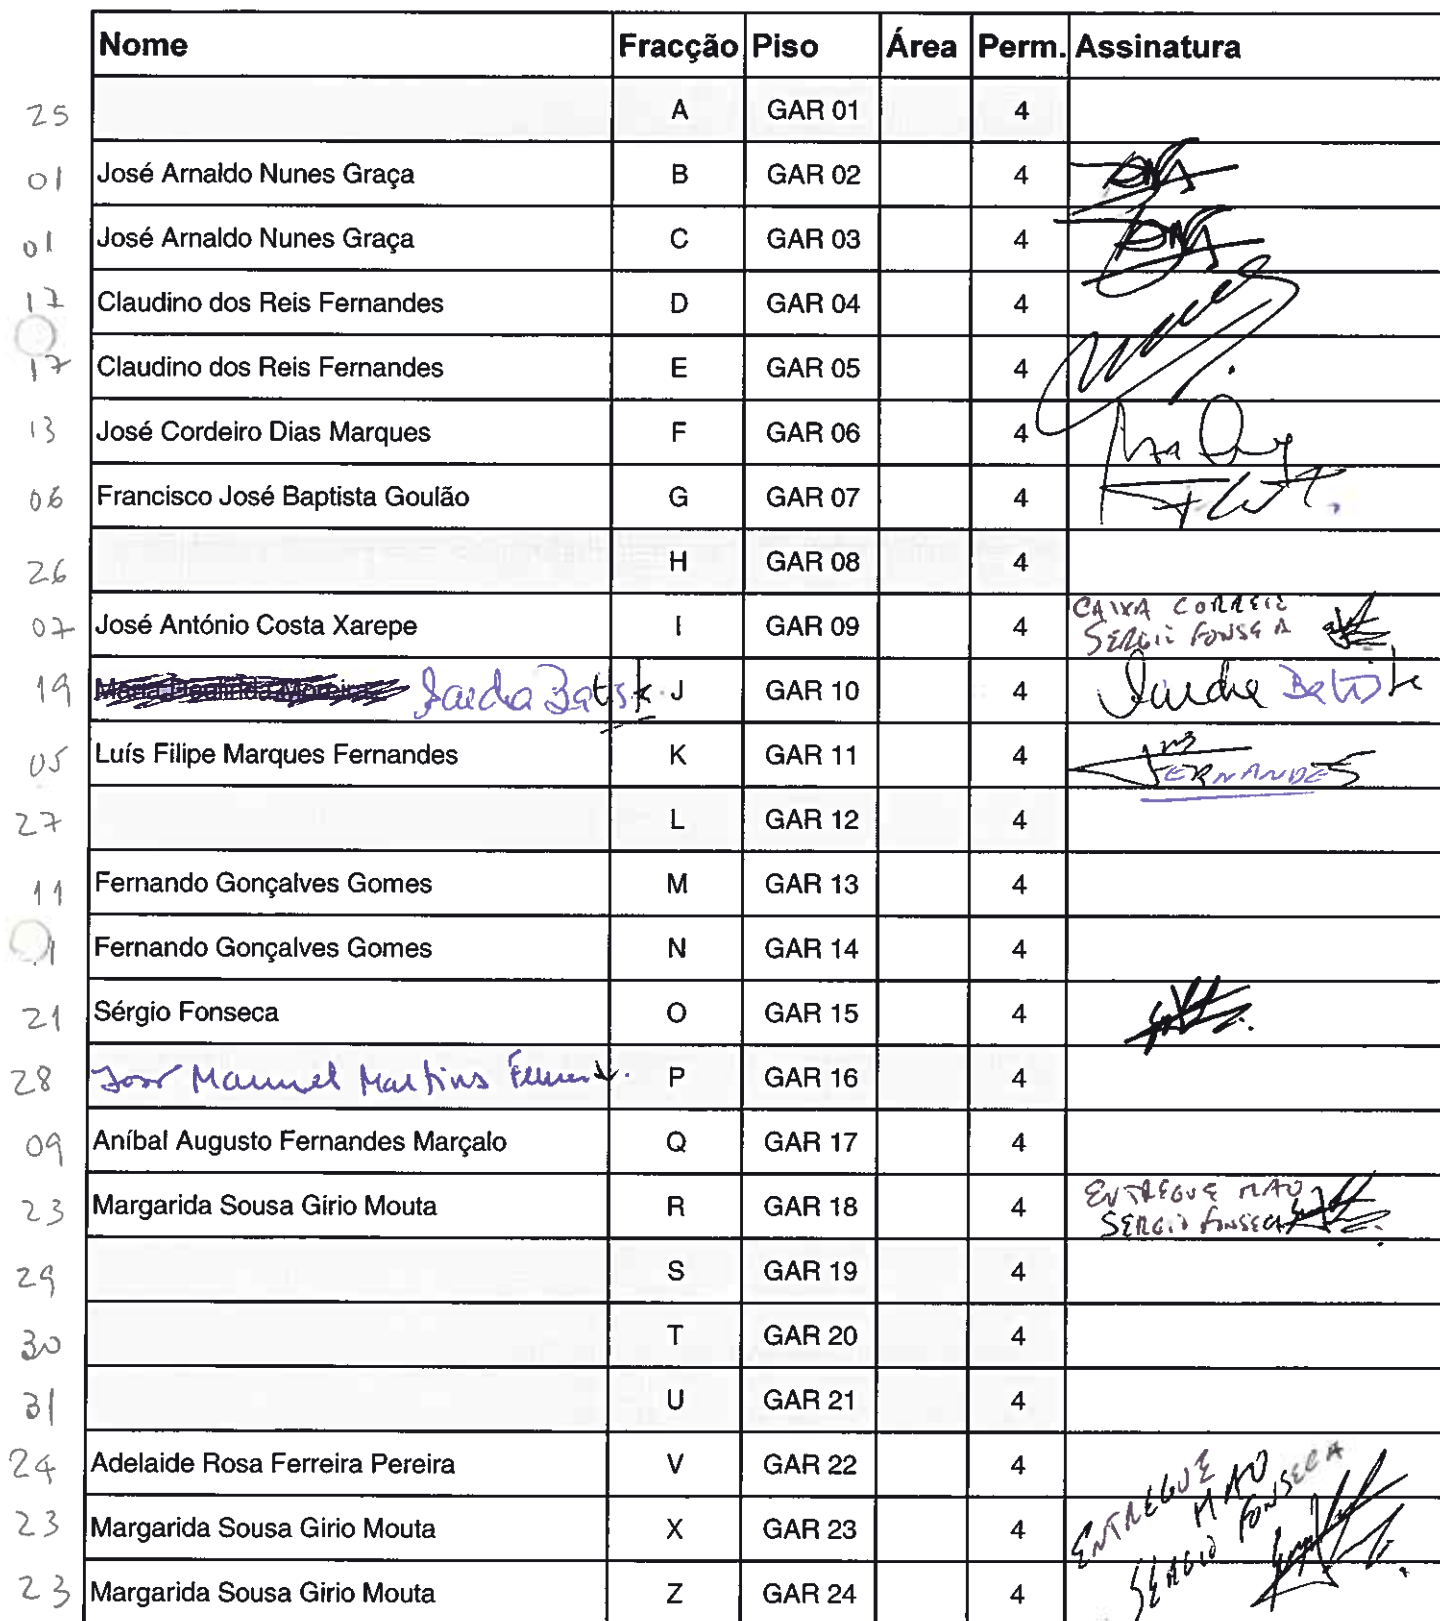 Nome Fracção Piso Área Perm. Assinatura
25 A GAR 01 4
01 José Arnaldo Nunes Graça B GAR 02 4
01 José Arnaldo Nunes Graça C GAR 03 4
17 Claudino dos Reis Fernandes D GAR 04 4
17 Claudino dos Reis Fernandes E GAR 05 4
13 José Cordeiro Dias Marques F GAR 06 4
06 Francisco José Baptista Goulão G GAR 07 4
26 H GAR 08 4
07 José António Costa Xarepe I GAR 09 4 CAIXA CORREIO
SERGIO FONSECA
19 J GAR 10 4
05 Luís Filipe Marques Fernandes K GAR 11 4 FERNANDES
27 L GAR 12 4
11 Fernando Gonçalves Gomes M GAR 13 4
Fernando Gonçalves Gomes N GAR 14 4
21 Sérgio Fonseca O GAR 15 4
28 José Manuel Martins P GAR 16 4
09 Aníbal Augusto Fernandes Marçalo Q GAR 17 4
23 Margarida Sousa Gírio Mouta R GAR 18 4 ENTREGUE MAO
SERGIO FONSECA
29 S GAR 19 4
30 T GAR 20 4
31 U GAR 21 4
24 Adelaide Rosa Ferreira Pereira V GAR 22 4 ENTREGUE MAO
SERGIO FONSECA
23 Margarida Sousa Girio Mouta X GAR 23 4
23 Margarida Sousa Girio Mouta Z GAR 24 4